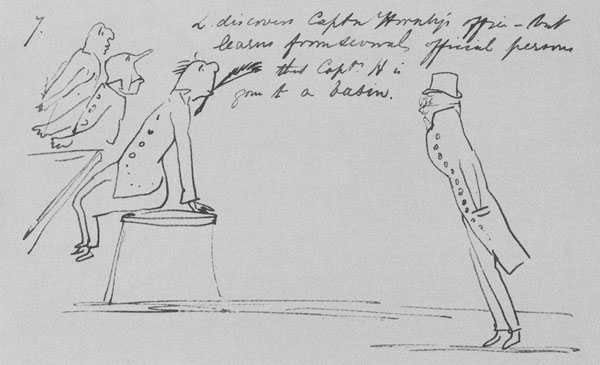 7.
L discovers Captn Hornby's offis - but
learns from several official persons
that Capt. H is
gone to a basin.